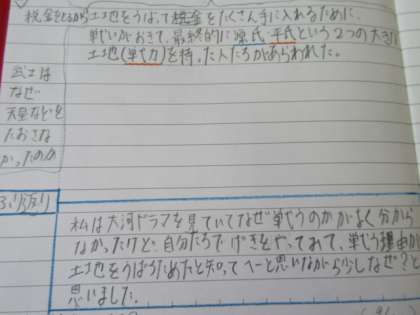 税金をとるから土地をうばって税金をたくさん手に入れるために、
戦いがおきて、最終的に源氏 平氏という2つの大きな
土地(戦力)を持った人たちがあらわれた。
武士は
なぜ
天皇などを
たおさな
かったのか
ふり返り
私は大河ドラマを見ていてなぜ戦うのかがよく分から
なかったけど、自分たちでげきをやってみて、戦う理由が
土地をうばうためだと知ってへーと思いながら少しなぜ?と
思いました。